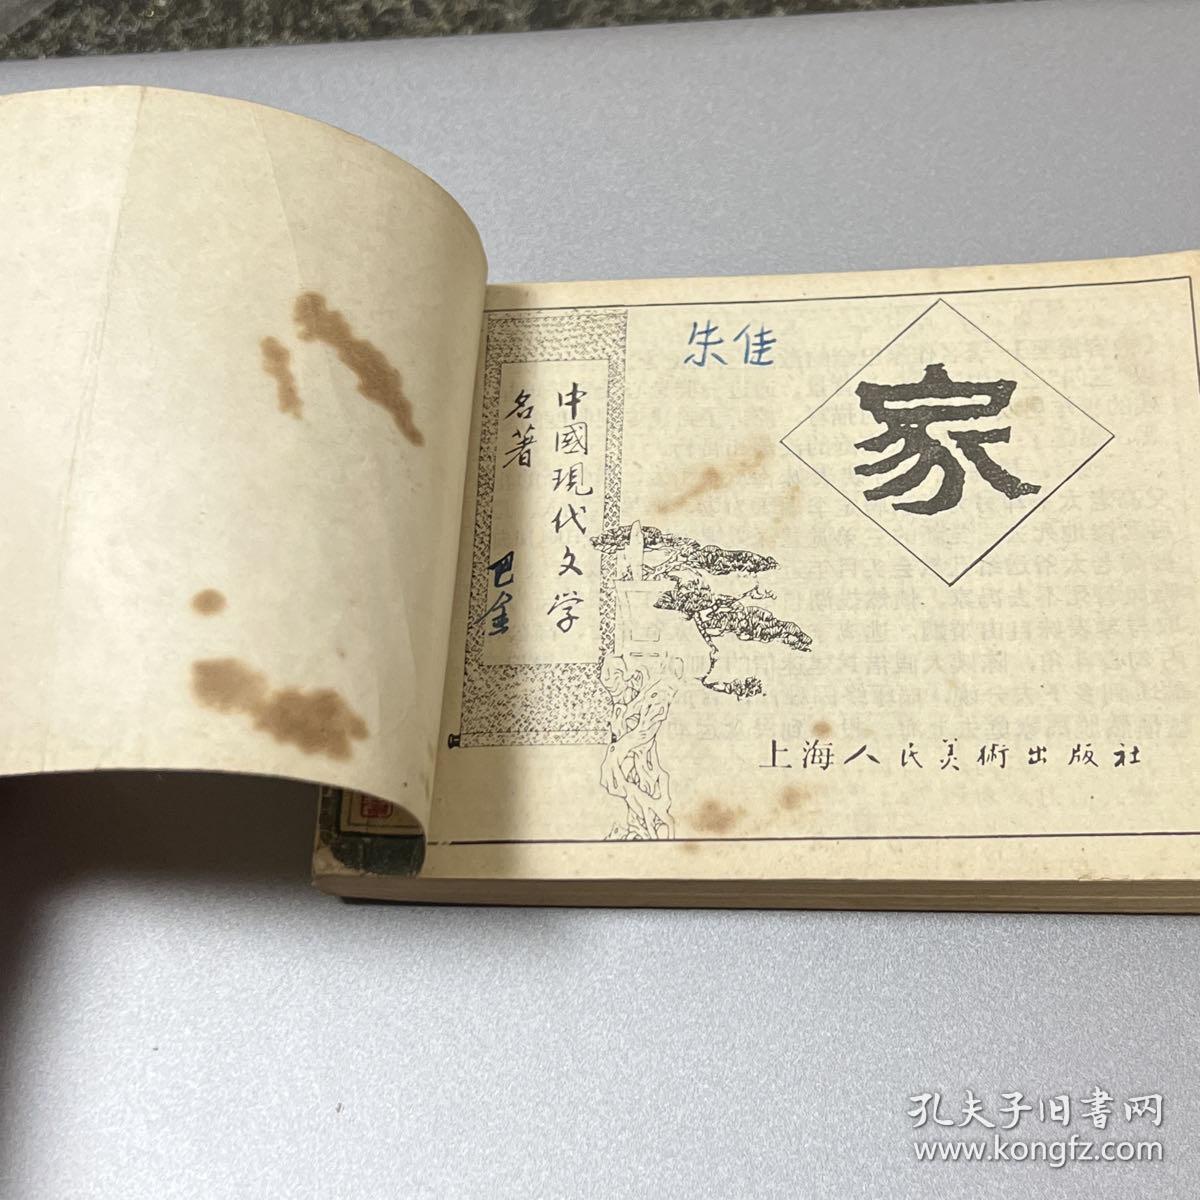 中國現代文学
名著
巴金
朱佳
家
上海人民美術出版社
孔夫子旧書网
www.kongfz.com